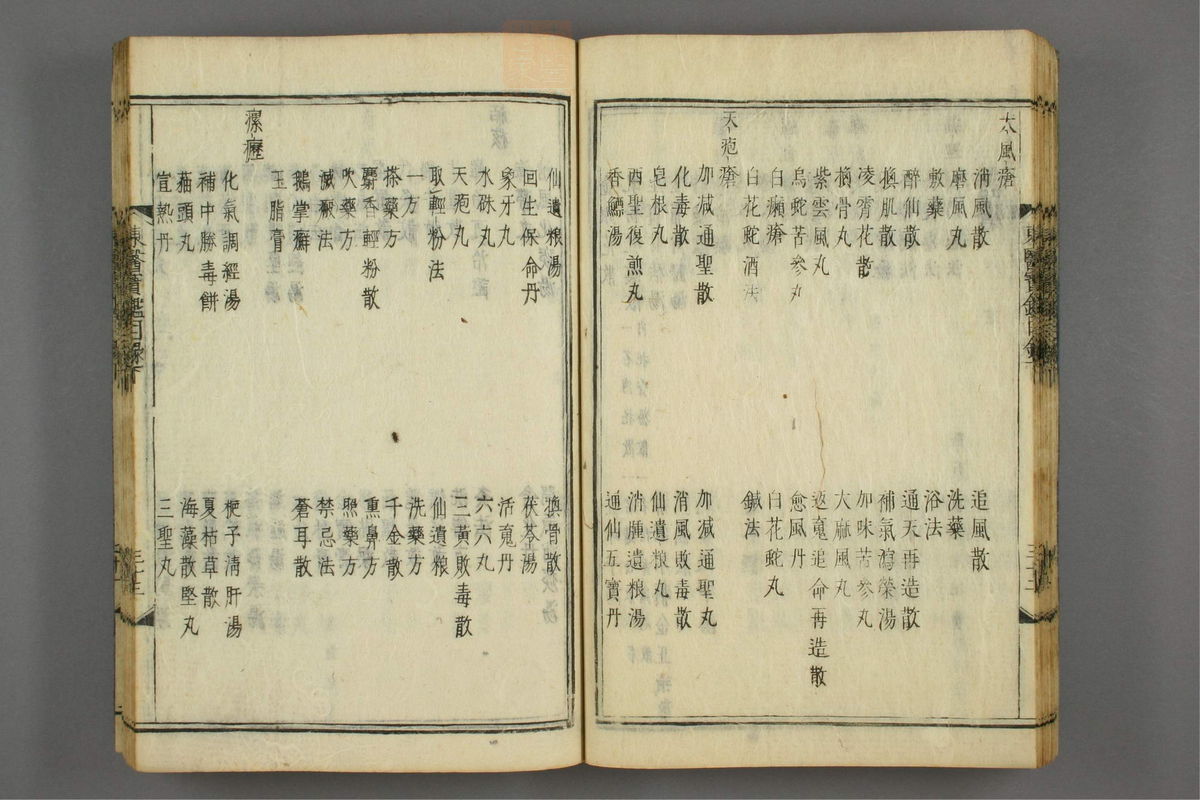 大風瘡
消風散 追風散
磨風丸 洗藥
敷藥 浴法
醉仙散 通天再造散
換肌散 補氣瀉榮湯
凌霄花散 加味苦參丸
換骨丸 大麻風丸
紫雲風丸 返魂追命再造散
烏蛇苦參丸 愈風丹
白癩瘡 白花蛇丸
白花蛇酒法 鍼法
天疱瘡
加減通聖散 加減通聖丸
化毒散 消風敗毒散
皂根丸 仙遺粮丸
西聖復煎丸 消腫遺粮湯
香鰾湯 通仙五寶丹
仙遺粮湯 換骨散
回生保命丹 茯苓湯
象牙丸 活魂丹
水硃丸 六六丸
天疱丸 三黃敗毒散
取輕粉法 仙遺粮
一方 洗藥方
搽藥方 千金散
麝香輕粉散 熏鼻方
吹藥方 照藥方
滅瘢法 禁忌法
鵝掌癬 蒼耳散
玉脂膏
瘰癧
化氣調經湯 梔子淸肝湯
補中勝毒餅 夏枯草散
猫頭丸 海藻散堅丸
宣熱丹 三聖丸
東醫寶鑑目錄下